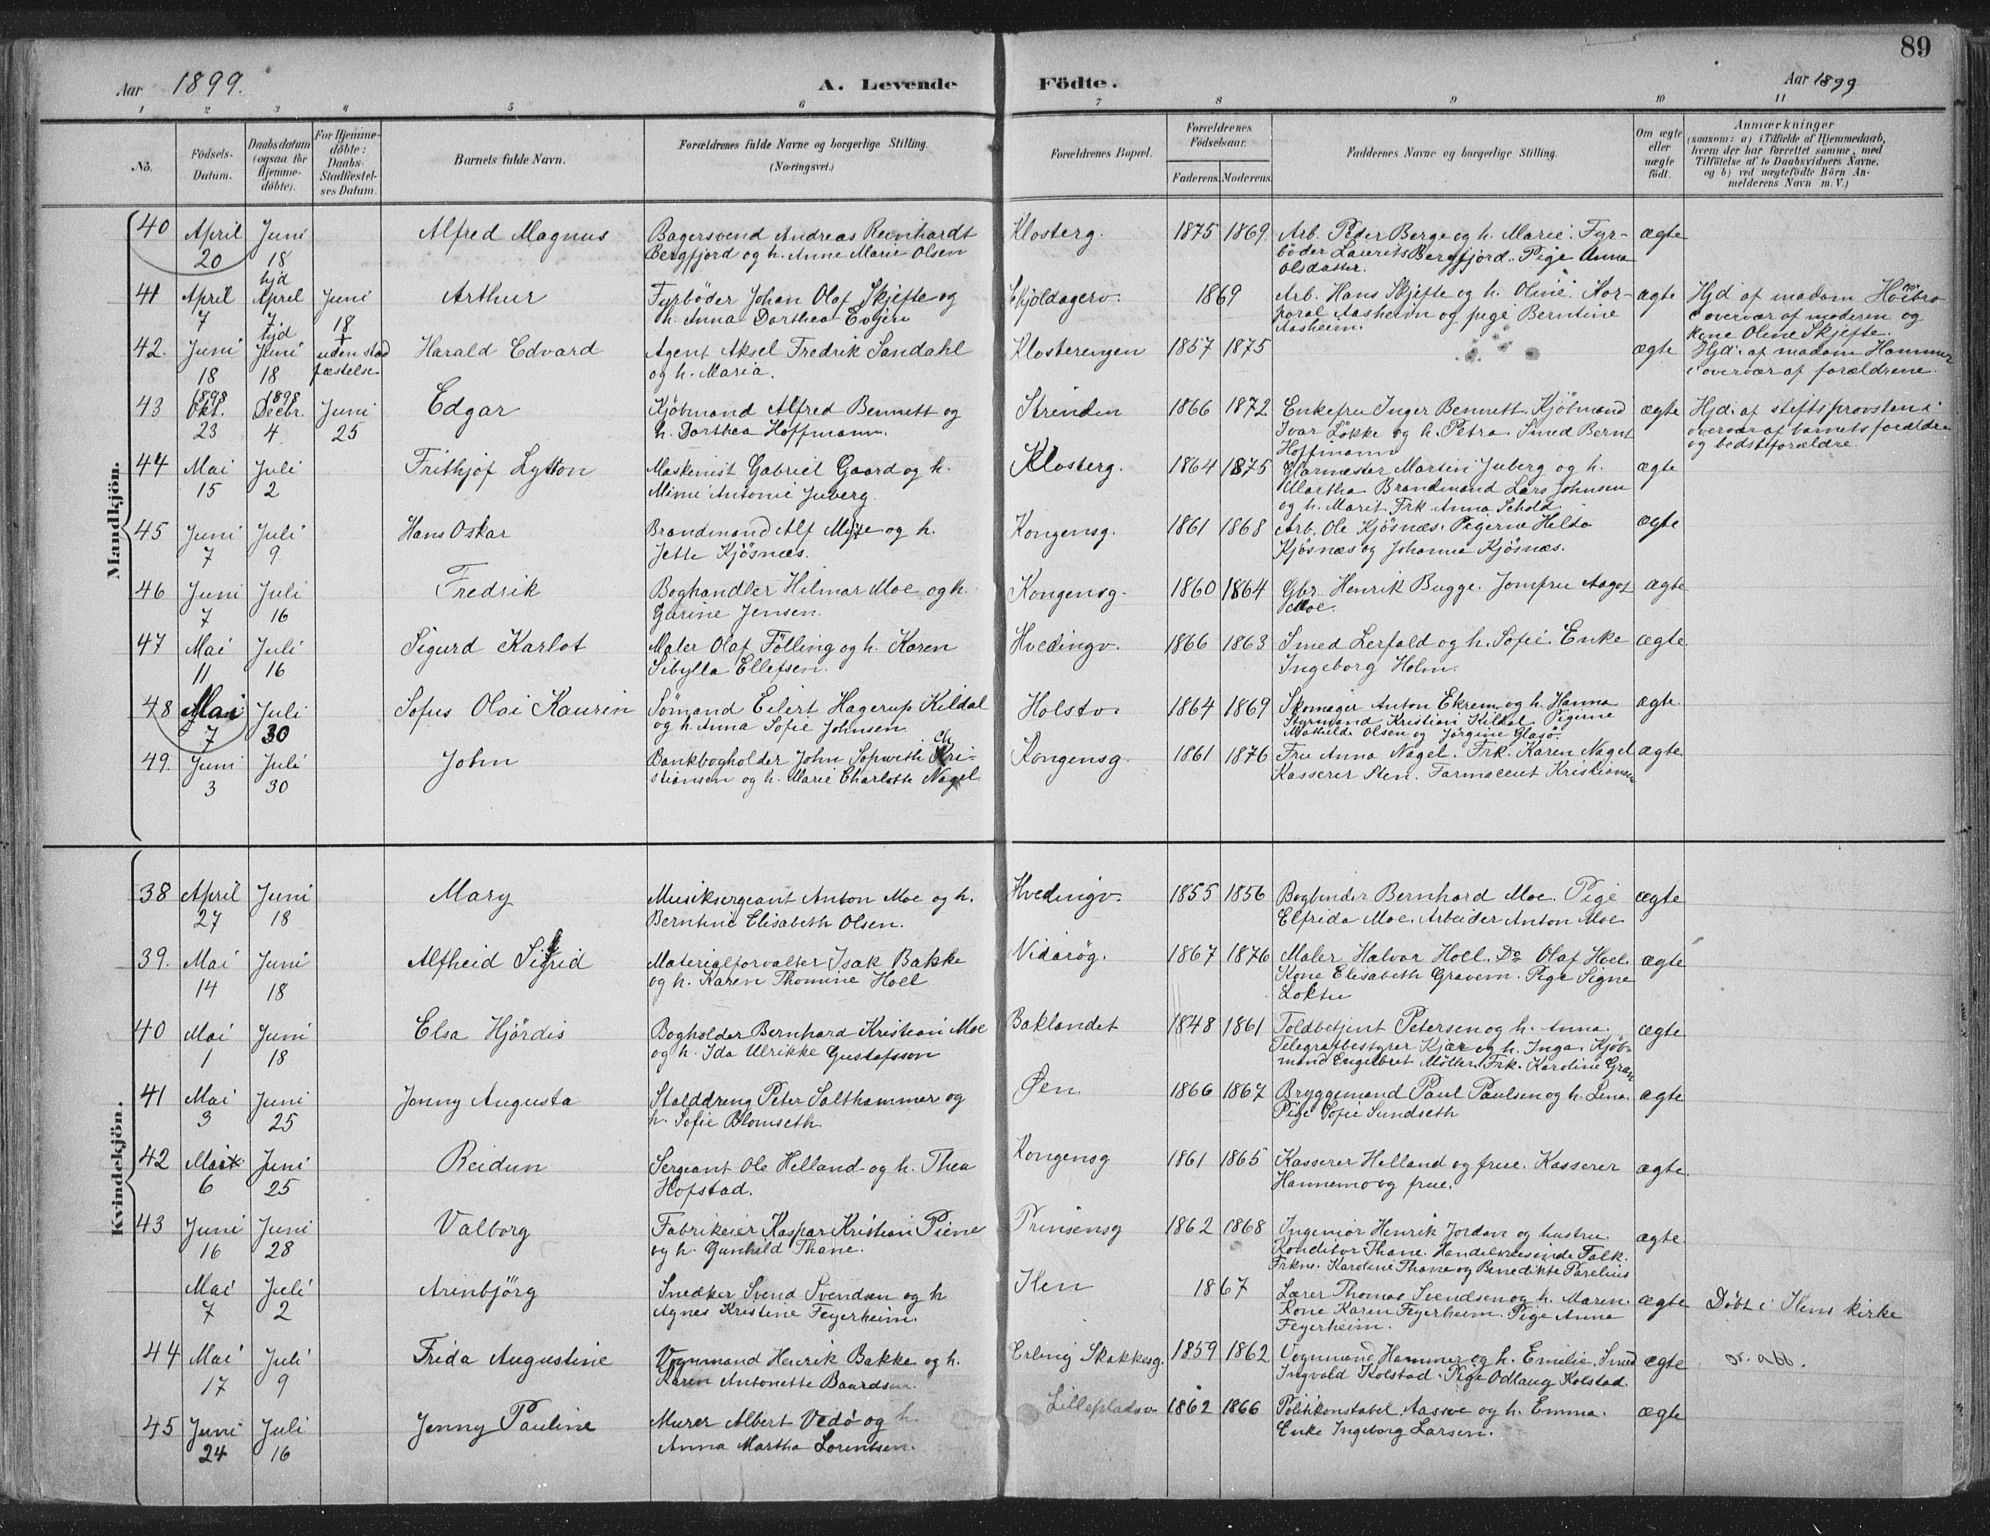 89
Aar 1899. A. Levende Födte. Aar 1899
1 2 3 4 5 6 7 8 9 10 11
No. Födsels-Datum. Daabsdatum (ogsaa for Hjemmedöbte). For Hjemmedöbte: Daabs-Stadfæstelses Datum. Barnets fulde Navn. Forældrenes fulde Navne og borgerlige Stilling. (Næringsvei.) Forældrenes Bopæl. Forældrenes Födselsaar. Faderens. Moderens. Faddernes Navne og borgerlige Stilling. Om ægte eller uægte födt. Anmærkninger (saasom: a) i Tilfælde af Hjemmedaab, hvem der har forrettet samme, med Tilföielse af to Daabsvidners Navne, og b) ved uægtefödte Börn Anmelderens Navn m. V.)
Mandkjön.
40 April 20 Juni 18 Alfred Magnus Bagersvend Andreas Reinhardt
Bergfjord og h. Anne Marie Olsen Klosterg. 1875 1869 Arb. Peder Berge og h. Marie. Fyr-
böder Laurits Bergfjord. Pige Anna
Olsdatter. ægte
41 April 7 hjd April 7 Juni 18 Arthur Fyrböder Johan Olaf Skjefte og
h. Anna Dorthea Evjen Skjoldagerv. 1869 Arb. Hans Skjefte og h. Oline. Kor-
poral Aasheim og pige Berntine
Aasheim. ægte Hjd af madam Höibro
i overvær af moderen og
kone Oline Skjefte.
42. Juni 18 hjd Juni 18 uden stad
fæstelse Harald Edvard Agent Aksel Fredrik Sandahl
og h. Maria. Klosterengen 1857 1875 ægte Hjd. af madam Hammer
i overvær af forældrene.
43 1898 Okt. 23 1898 Decbr. 4 Juni 25 Edgar Kjöbmand Alfred Bennett og
h. Dorthea Hoffmann. Strinden 1866 1872 Enkefru Inger Bennett. Kjöbmand
Ivar Lökke og h. Petra. Smed Bernt
Hoffmann ægte Hjd. af stiftsprovsten i
overvær af barnets forældre
og bedstforældre.
44 Mai 15 Juli 2 Frithjof Lytton Maskinist Gabriel Gaard og h.
Mimi Antonie Juberg. Klosterg. 1864 1875 Glarmester Martin Juberg og h.
Martha. Brandmand Lars Johnsen
og h. Marit. Frk Anna Schold. ægte
45 Juni 7 Juli 9 Hans Oskar Brandmand Alf Moe og h.
Jette Kjösnæs. Kongensg. 1861 1868 Arb. Ole Kjösnæs. Pigerne Hilda
Kjösnæs og Johanna Kjösnæs. ægte
46 Juni 7 Juli 16 Fredrik Boghandler Hilmar Moe og h.
Garine Jensen. Kongensg. 1860 1864 Gbr. Henrik Bugge. Jomfru Aagot
Moe. ægte
47 Mai 11 Juli 16 Sigurd Karlot Maler Olaf Fölling og h. Karen
Sibylla Ellefsen. Hvedingv. 1866 1863 Smed Lerfald og h. Sofie. Enke
Ingeborg Holm. ægte
48 Mai 7 Juli 30 Sofus Olai Kaurin Sömand Eilert Hagerup Kildal
og h. Anna Sofie Johnsen Holstv. 1864 1869 Skomager Anton Ekrem og h. Hanna
Styrmand Kristian Kildal. Pigerne
Mathilde Olsen og Jörgine Glasö. ægte.
49. Juni 3 Juli 30 John Bankbogholder John Sopwith Kri-
stiansen og h. Marie Charlotte Nagel Kongensg. 1861 1876 Fru Anna Nagel. Frk. Karen Nagel
Kasserer Sten. Farmaceut Kristiansen ægte.
Kvindekjön.
38 April 27 Juni 18 Mary Musiksergeant Anton Moe og h.
Berntine Elisabeth Olsen. Hvedingv. 1855 1856 Bogbinder Bernhard Moe. Pige
Elfrida Moe. Arbeider Anton Moe ægte
39. Mai 14 Juni 18 Alfheid Sigrid Materialforvalter Isak Bakke
og h. Karen Thomine Hoel Vidarsg. 1867 1876 Maler Halvor Hoel. Do Olaf Hoel.
Kone Elisabeth Gravem. Pige Signe
Loktu ægte
40 Mai 1 Juni 18 Elsa Hjördis Bogholder Bernhard Kristian Moe
og h. Ida Ulrikke Gustafsson Baklandet 1848 1861 Toldbetjent Petersen og h. Anna.
Telegrafbestyrer Kjær og h. Inga. Kjöb-
mand Engelbret Möller. Frk. Karoline Gran ægte
41 Mai 3 Juni 25 Jenny Augusta Stalddreng Peter Salthammer og
h. Sofie Blomseth. Øen 1866 1867 Bryggemand Paul Paulsen og h. Lina.
Pige Sofie Sundseth ægte
42 Mai 6 Juni 25 Reidun Sergeant Ole Helland og h. Thea
Hofstad. Kongensg 1861 1865 Kasserer Helland og frue. Kasserer
Hannemo og frue. ægte
43 Juni 16 Juni 28 Valborg Fabrikeier Kaspar Kristian Piene
og h. Gunhild Thane. Prinsensg 1862 1868 Ingeniör Henrik Jordan og hustru
Konditor Thane. Handelsreisende Falk.
Frkne. Karoline Thane og Benedikte Parelius ægte.
Mai 7 Juli 2 Arinbjörg Snedker Svend Svendsen og h
Agnes Kristine Feyerheim. Ilen 1867 Lærer Thomas Svendsen og h. Maren.
Kone Karen Feyerheim. Pige Anna
Feyerheim. ægte Döbt i Ilens kirke
44 Mai 17 Juli 9 Frida Augustine Vognmand Henrik Bakke og h.
Karen Antonette Baardsen. Erling Skakkesg. 1859 1862 Vognmand Hammer og h. Emilie. Smed
Ingvald Kolstad. Pige Odlaug Kolstad. ægte or. att.
45 Juni 24 Juli 16 Jenny Pauline Murer Albert Vedö og h.
Anna Martha Lorentsen. Lillepladsv. 1862 1866 Politikonstabel Aasve og h. Emma.
Enke Ingeborg Larsen. ægte